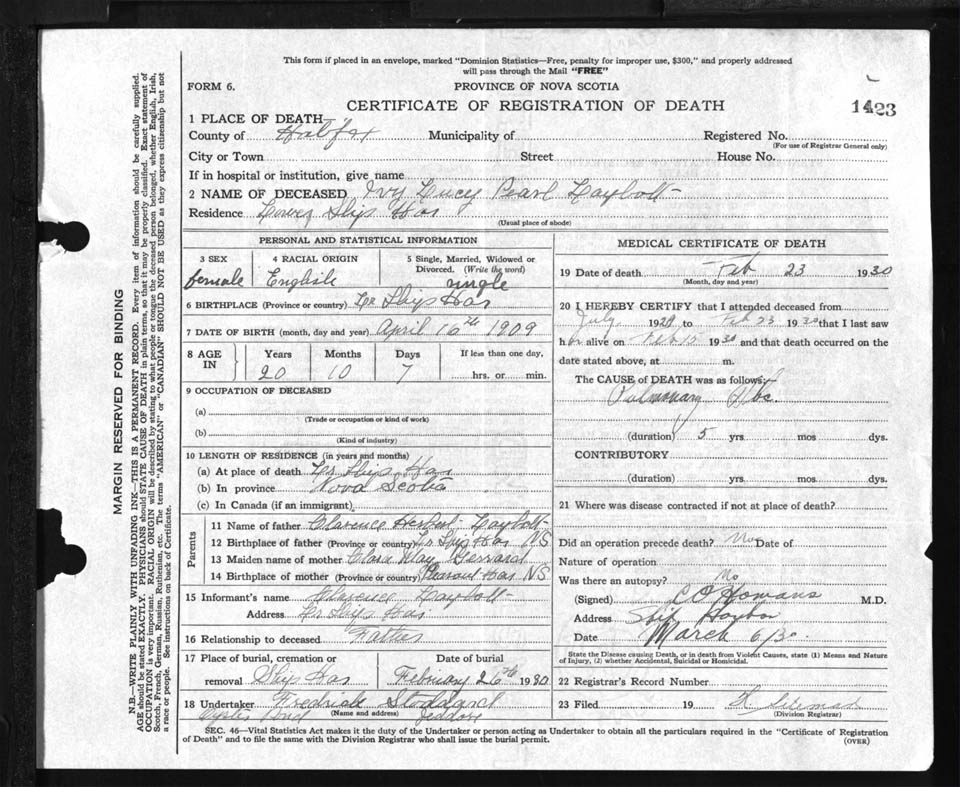 This form if placed in an envelope, marked "Dominion Statistics—Free, penalty for improper use, $300," and properly addressed
will pass through the Mail "FREE"
FORM 6.
PROVINCE OF NOVA SCOTIA
CERTIFICATE OF REGISTRATION OF DEATH
1423
1 PLACE OF DEATH
County of Halifax Municipality of Registered No.
(For use of Registrar General only)
City or Town Street House No.
If in hospital or institution, give name
2 NAME OF DECEASED Ivy Lucy Pearl Laybolt
Residence Lower Ship Har
(Usual place of abode)
PERSONAL AND STATISTICAL INFORMATION
3 SEX 4 RACIAL ORIGIN 5 Single, Married, Widowed or
Divorced. (Write the word)
female English single
6 BIRTHPLACE (Province or country) Lr Ship Har
7 DATE OF BIRTH (month, day and year) April 16th 1909
8 AGE IN Years Months Days If less than one day,
20 10 7 hrs. or min.
9 OCCUPATION OF DECEASED
(a)
(Trade or occupation or kind of work)
(b)
(Kind of industry)
10 LENGTH OF RESIDENCE (in years and months)
(a) At place of death Lr Ship Har
(b) In province Nova Scotia
(c) In Canada (if an immigrant)
Parents
11 Name of father Clarence Herbert Laybolt
12 Birthplace of father (Province or country) Lr Ship Har NS
13 Maiden name of mother Clara May
14 Birthplace of mother (Province or country) Pleasant Har NS
15 Informant's name Clarence Laybolt
Address Lr Ship Har
16 Relationship to deceased Father
17 Place of burial, cremation or Date of burial
removal Ship Har February 26th 1930
18 Undertaker Fredrick Stoddard
(Name and address)
Oyster Pond Jeddore
MEDICAL CERTIFICATE OF DEATH
19 Date of death Feb 23 1930
(Month, day and year)
20 I HEREBY CERTIFY that I attended deceased from
July 1929 to Feb 23 1930 that I last saw
h er alive on Feb 15 1930 and that death occurred on the
date stated above, at m.
The CAUSE of DEATH was as follows:
Pulmonary Tbc.
(duration) 5 yrs. mos dys.
CONTRIBUTORY
(duration) yrs. mos dys.
21 Where was disease contracted if not at place of death?
Did an operation precede death? No Date of
Nature of operation
Was there an autopsy? No
(Signed) C O Homans M.D.
Address Ship Harbor
Date March 6/30
State the Disease causing Death, or in death from Violent Causes, state (1) Means and Nature
of Injury, (2) whether Accidental, Suicidal or Homicidal.
22 Registrar's Record Number
23 Filed 19
(Division Registrar)
SEC. 46—Vital Statistics Act makes it the duty of the Undertaker or person acting as Undertaker to obtain all the particulars required in the "Certificate of Registration
of Death" and to file the same with the Division Registrar who shall issue the burial permit.
(OVER)
MARGIN RESERVED FOR BINDING
N.B.—WRITE PLAINLY WITH UNFADING INK—THIS IS A PERMANENT RECORD. Every item of information should be carefully supplied.
AGE should be stated EXACTLY. PHYSICIANS should STATE CAUSE OF DEATH in plain terms, so that it may be properly classified. Exact statement of
OCCUPATION is very important. RACIAL ORIGIN will be described by stating to what people or tongue the deceased person belonged, whether English, Irish,
Scotch, French, German, Russian, Ruthenian, etc. The terms "AMERICAN" or "CANADIAN" SHOULD NOT BE USED as they express citizenship but not
a race or people. See instructions on back of Certificate.